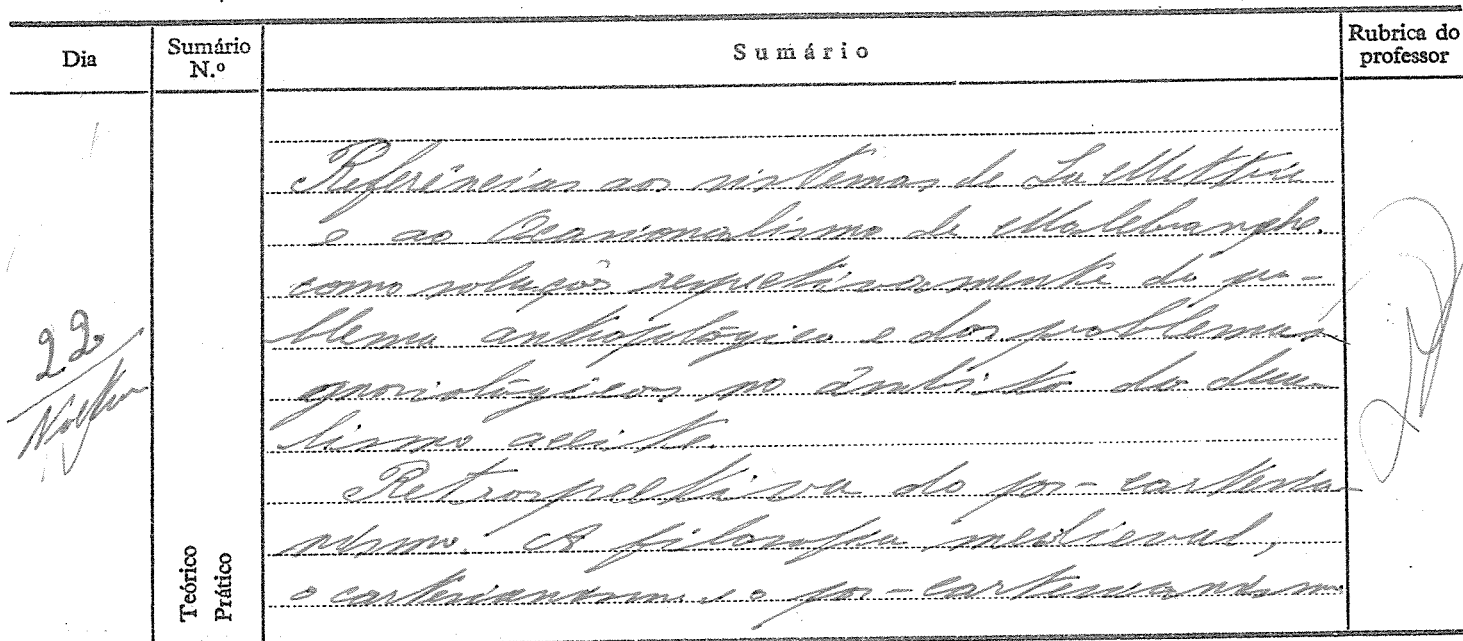 Dia
Sumário
N.º
Sumário
Rubrica do
professor
Referências aos sistemas de La Mettrie
e ao Ocasionalismo de Malebranche.
como soluções respectivamente do pro-
blema antropológico e dos problemas
gnoseológicos no âmbito do dua-
lismo aceite.
Retrospectiva do pos-cartesia-
nismo. A filosofia medieval,
o cartesianismo e o pos-cartesianismo
22
Teórico
Prático